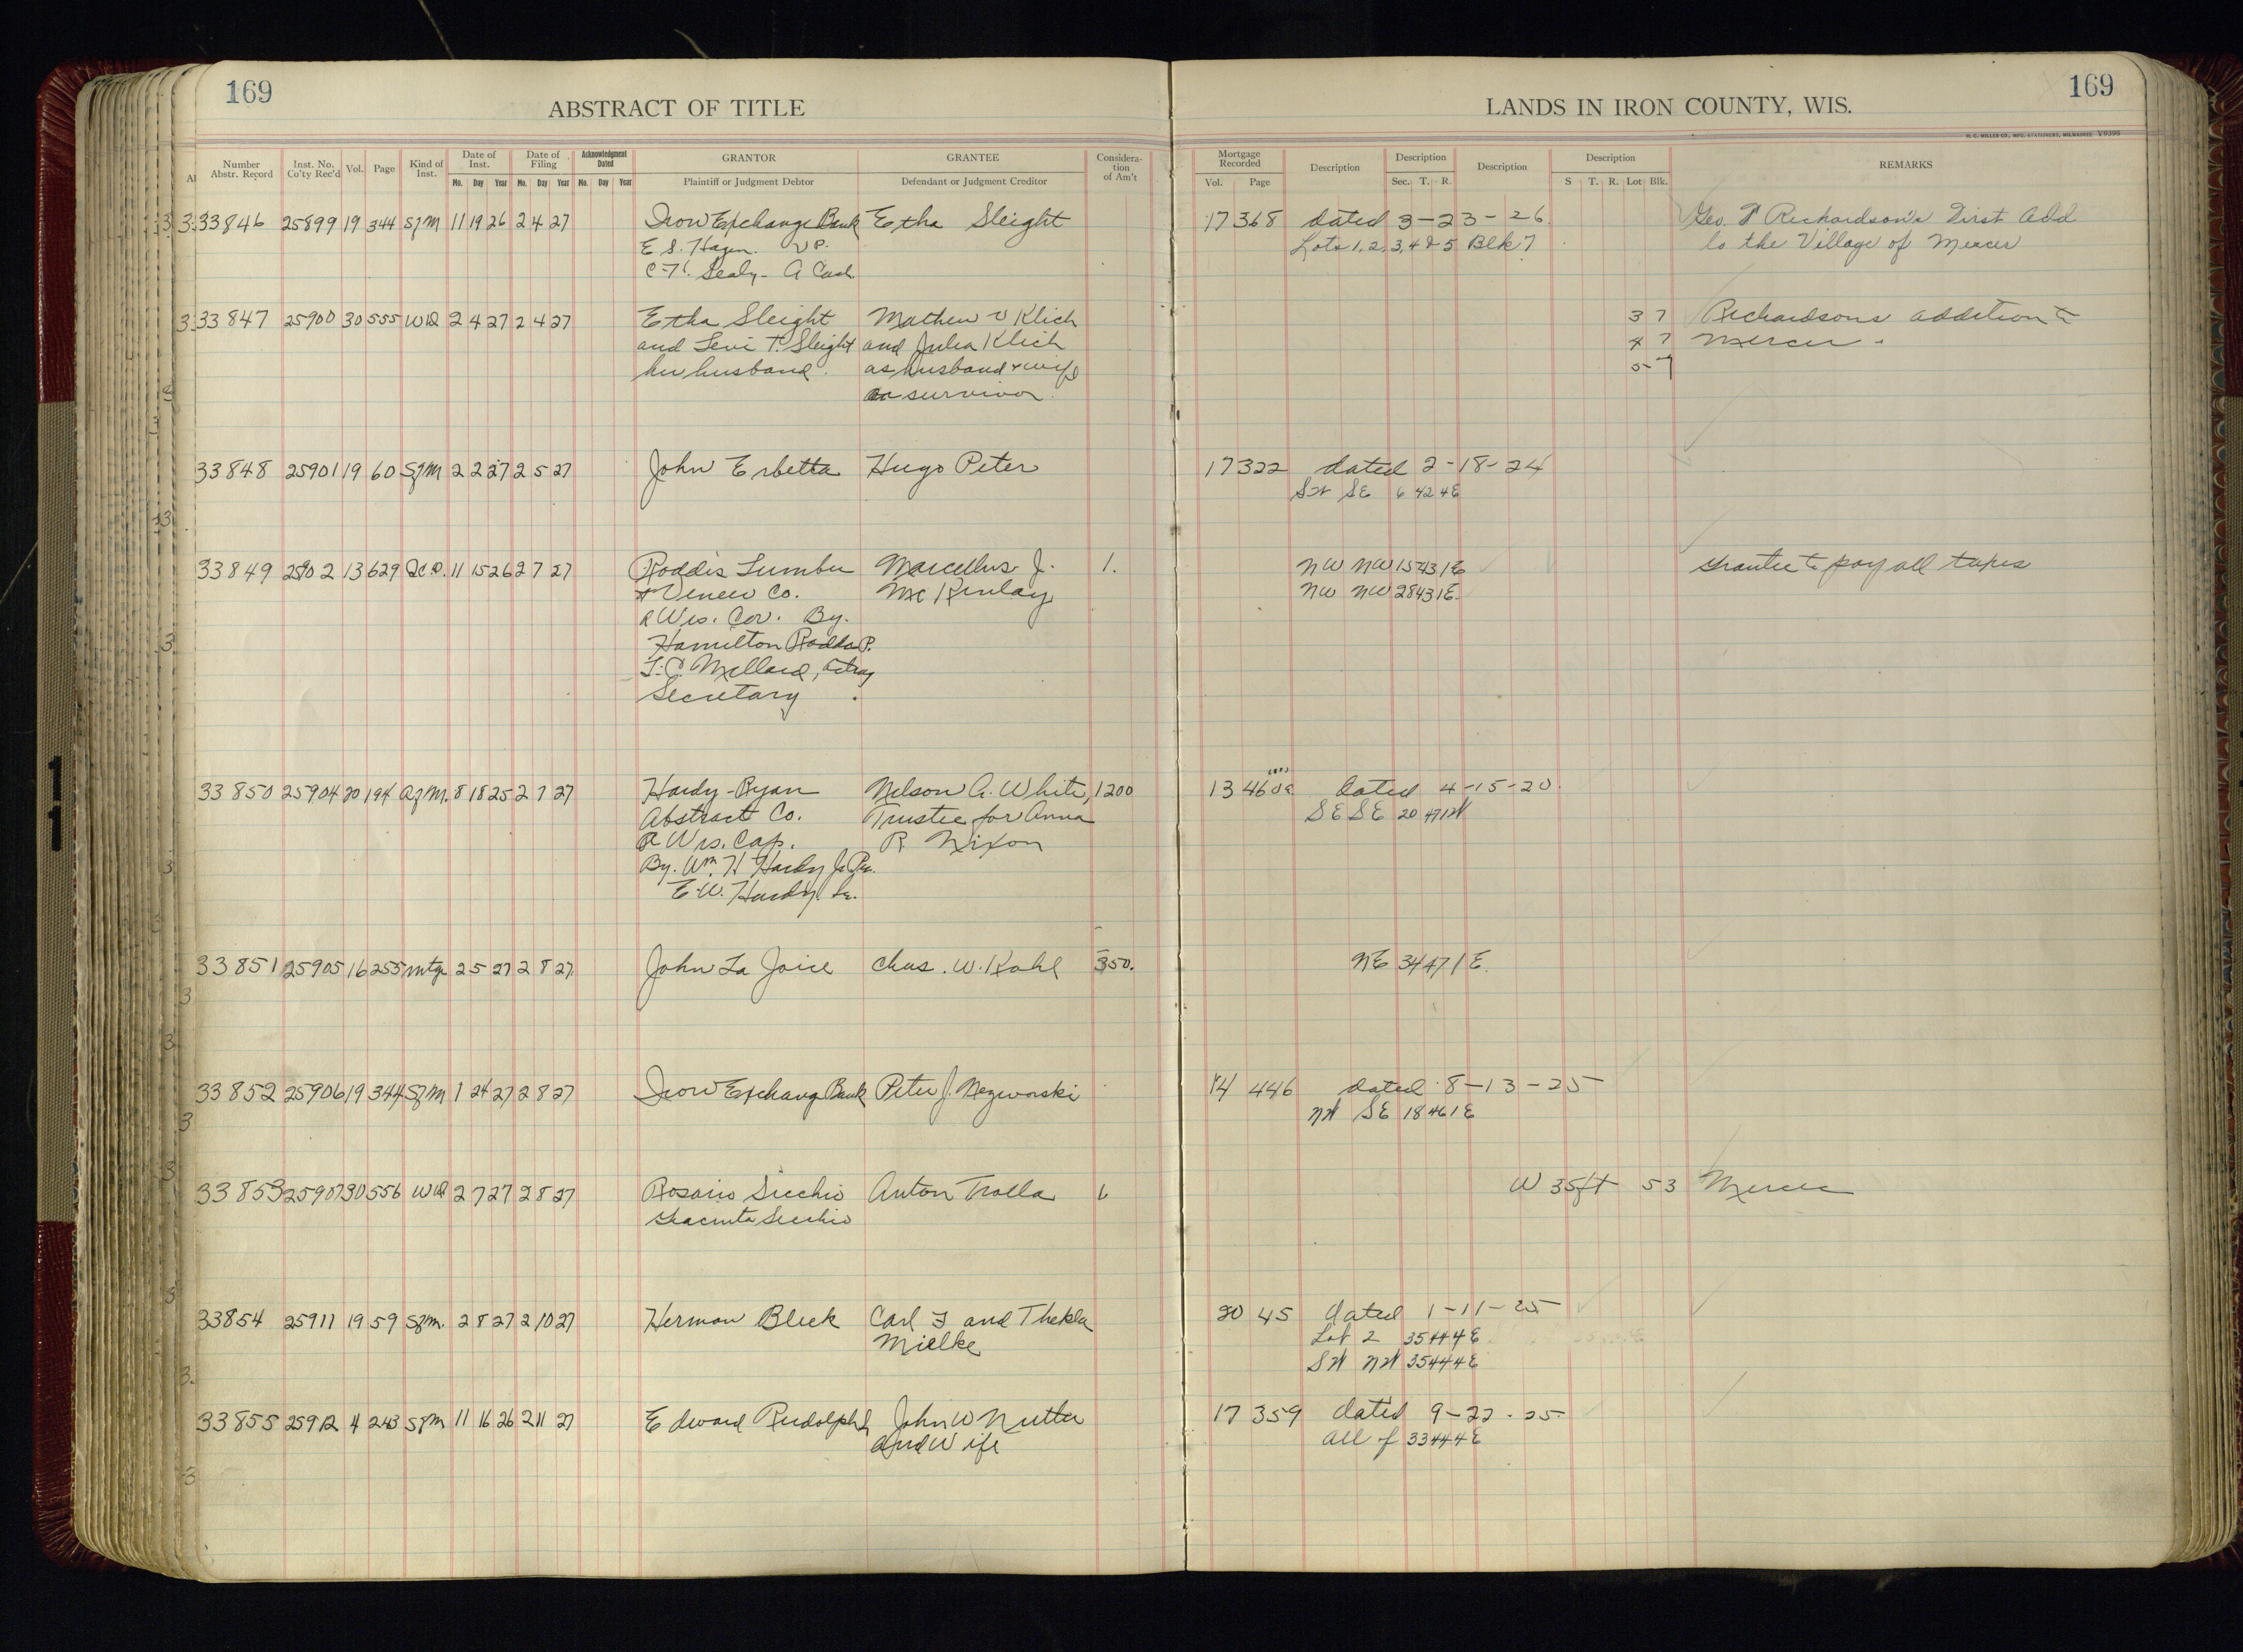 169
ABSTRACT OF TITLE
LANDS IN IRON COUNTY, WIS.
169
H. C. MILLER CO., MFG. STATIONERS, MILWAUKEE Y9398
Number Abstr. Record
Inst. No. Co'ty Rec'd
Vol.
Page
Kind of Inst.
Date of Inst.
Mo. Day Year
Date of Filing
Mo. Day Year
Acknowledgment Dated
Mo. Day Year
GRANTOR
Plaintiff or Judgment Debtor
GRANTEE
Defendant or Judgment Creditor
Considera-tion of Am't
Mortgage Recorded
Vol. Page
Description
Description
Sec. T. R.
Description
Description
S T. R. Lot Blk.
REMARKS
33846 25899 19 344 SfM 11 19 26 2 4 27 Iron Exchange Bank Etha Sleight 17 368 dated 3-23-26 Geo. Richardson's First Add
E S. Hagen. V P. Lots 1, 2, 3, 4 & 5 Blk 7 to the Village of Mercer
Sealy - A Cash
33847 25900 30 555 WD 2 4 27 2 4 27 Etha Sleight Mathew V Klich 3 7 Richardsons addition to
and Levi T. Sleight and Julia Klich 4 7 Mercer
her husband. as husband & wife 5 7
survivor
33848 25901 19 60 SfM 2 2 27 2 5 27 John Erbetta Hugo Peter 17 322 dated 2-18-24
SW SE 6 42 4E
33849 25902 13 629 QCD. 11 15 26 2 7 27 Roddis Lumber Marcellus J. 1. NW NW 15 43 1E Grantee to pay all taxes
& Veneer Co. McKinlay NW NW 28 43 1E
a Wis. Cor. By.
Hamilton Roddis P.
Millard,
Secretary
33850 25904 20 194 AfM. 8 18 25 2 7 27 Hardy-Ryan Nelson A. White, 1200 13 460 dated 4-15-20
Abstract Co. Trustee for Anna SE SE 20 47 1W
a Wis. Cap. R Nixon
By. Wm. H Hardy Jr
E. W. Hardy
33851 25905 16 255 Mtge 2 5 27 2 8 27 John La Joice Chas. W. Kahl 350. NE 34 47 1E.
33852 25906 19 344 SfM 1 24 27 2 8 27 Iron Exchang Bank Peter J. Nezworski 14 446 dated 8-13-25
NW SE 18 46 1E
33853 25907 30 556 WD 2 7 27 2 8 27 Rosario Sicchio Anton Trolla 1. W 35ft 5 3 Mercer
Giacinta Sicchio
33854 25911 19 59 SfM. 2 8 27 2 10 27 Herman Bleck Carl F and Thekla 20 45 dated 1-11-25
Mielke Lot 2 35 44 4E
SW NW 35 44 4E
33855 25912 4 243 SfM 11 16 26 2 11 27 Edward Rudolph John W Nutter 17 359 dated 9-22-25
and Wife all of 33 44 4E